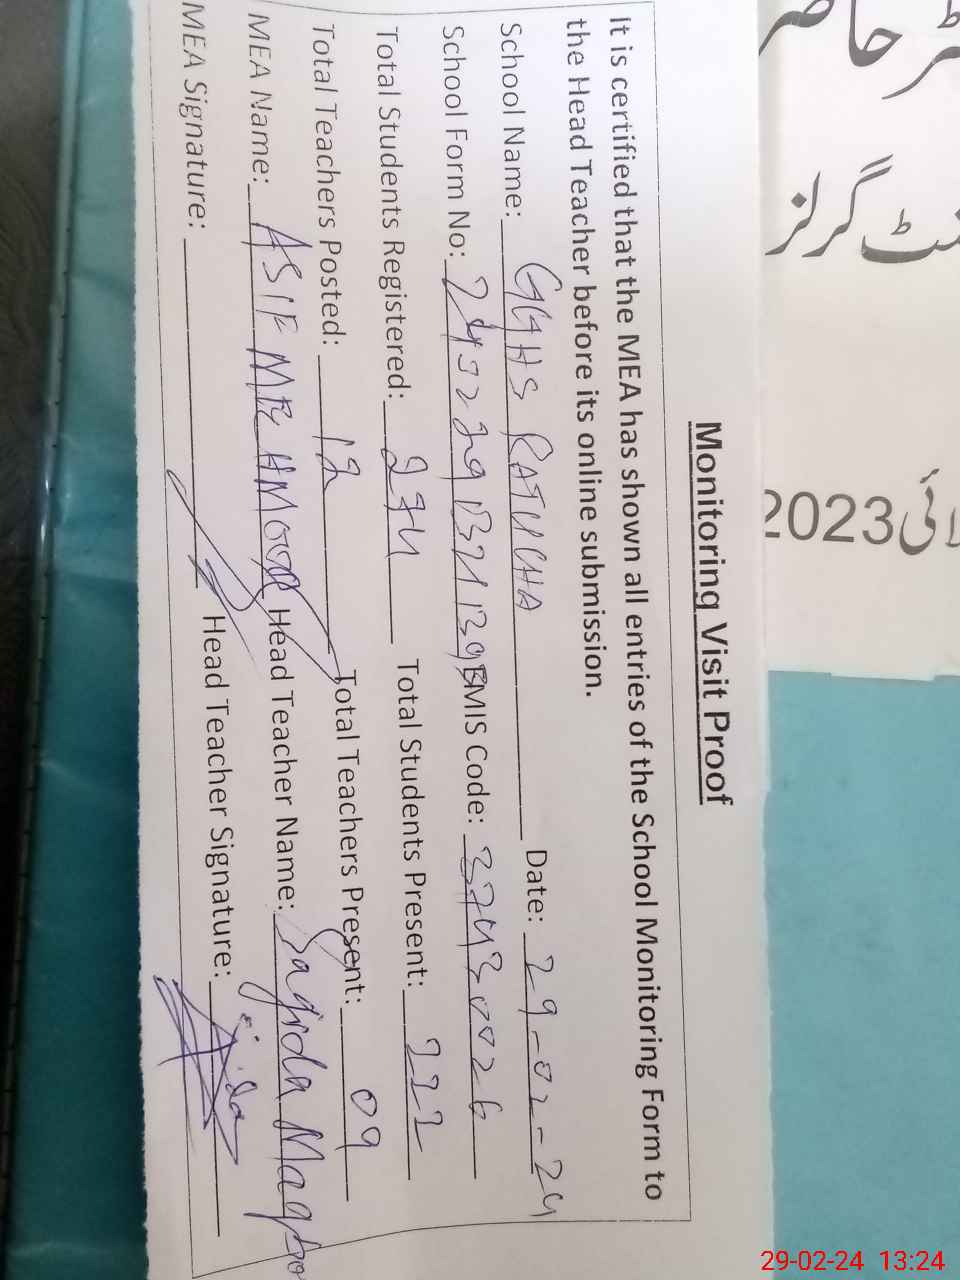 Monitoring Visit Proof
It is certified that the MEA has shown all entries of the School Monitoring Form to
the Head Teacher before its online submission.
School Name: GGHS RATUCHA Date: 29-02-24
School Form No: EMIS Code: 37430026
Total Students Registered: 274 Total Students Present: 222
Total Teachers Posted: 12 Total Teachers Present: 09
MEA Name: ASIF MEHMOOD Head Teacher Name: Sajida
MEA Signature: Head Teacher Signature:
حاضر
گرلز
2023
29-02-24 13:24